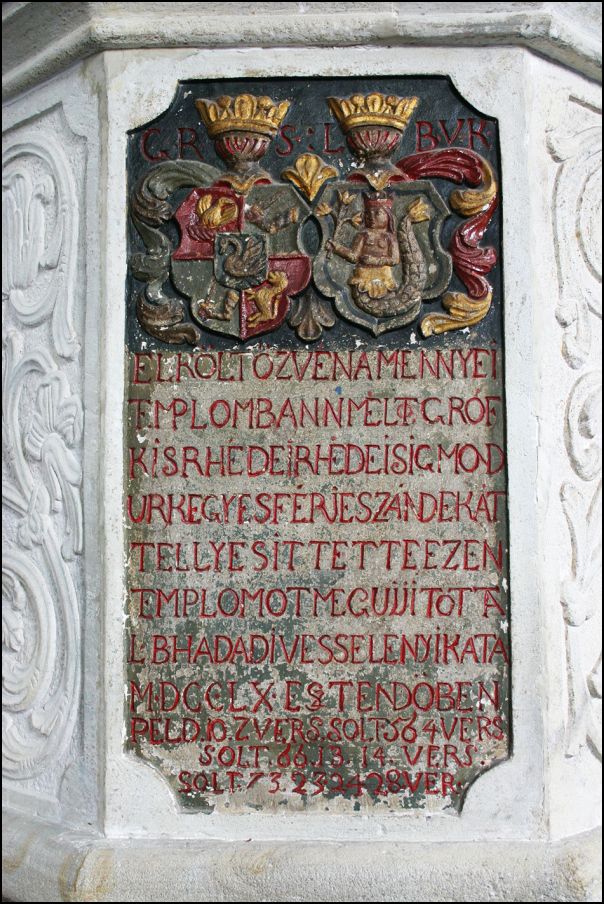 GR S : L BVK
ELKÖLTÖZVENAMENNYEI
TEMPLOMBANNMÉLT.GRÓF
KISRHÉDEIRHÉDEISIGMOD
URKEGYESFÉRJESZÁNDEKÁT
TELLYESITTETTEEZEN
TEMPLOMOTMEGUJJITÓTTA
L.BHADADIVESSELENYIKATA
MDCCLX ES§TENDOBEN
PELD.10.ZVERS.SOLT.56 4VERS
SOLT.66.13.14.VERS.
SOLT.73.23 24 28VER.